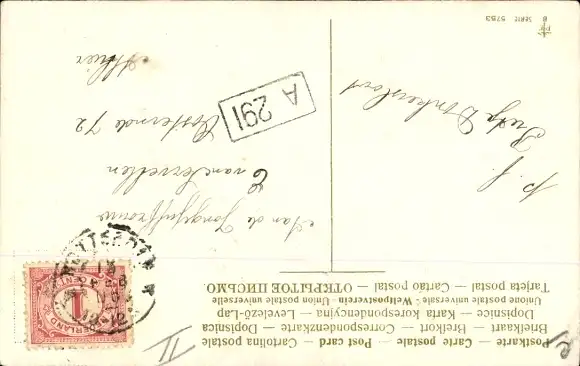 Postkarte — Carte postale — Post card — Cartolina postale
Briefkaart — Brefkort — Correspondenzkarte — Dopisnica
Dopisnice — Karta korespondencyjna — Levelező-Lap
Unione postale universale — Weltpostverein — Union postale universelle
Tarjeta postal — Cartão postal — ОТКРЫТОЕ ПИСЬМО
Aan de Jongejuffrouw
C van
Oosteinde 72
Alhier
A 291
p. f.
II
NEDERLAND
1
CENT
SERIE 5783